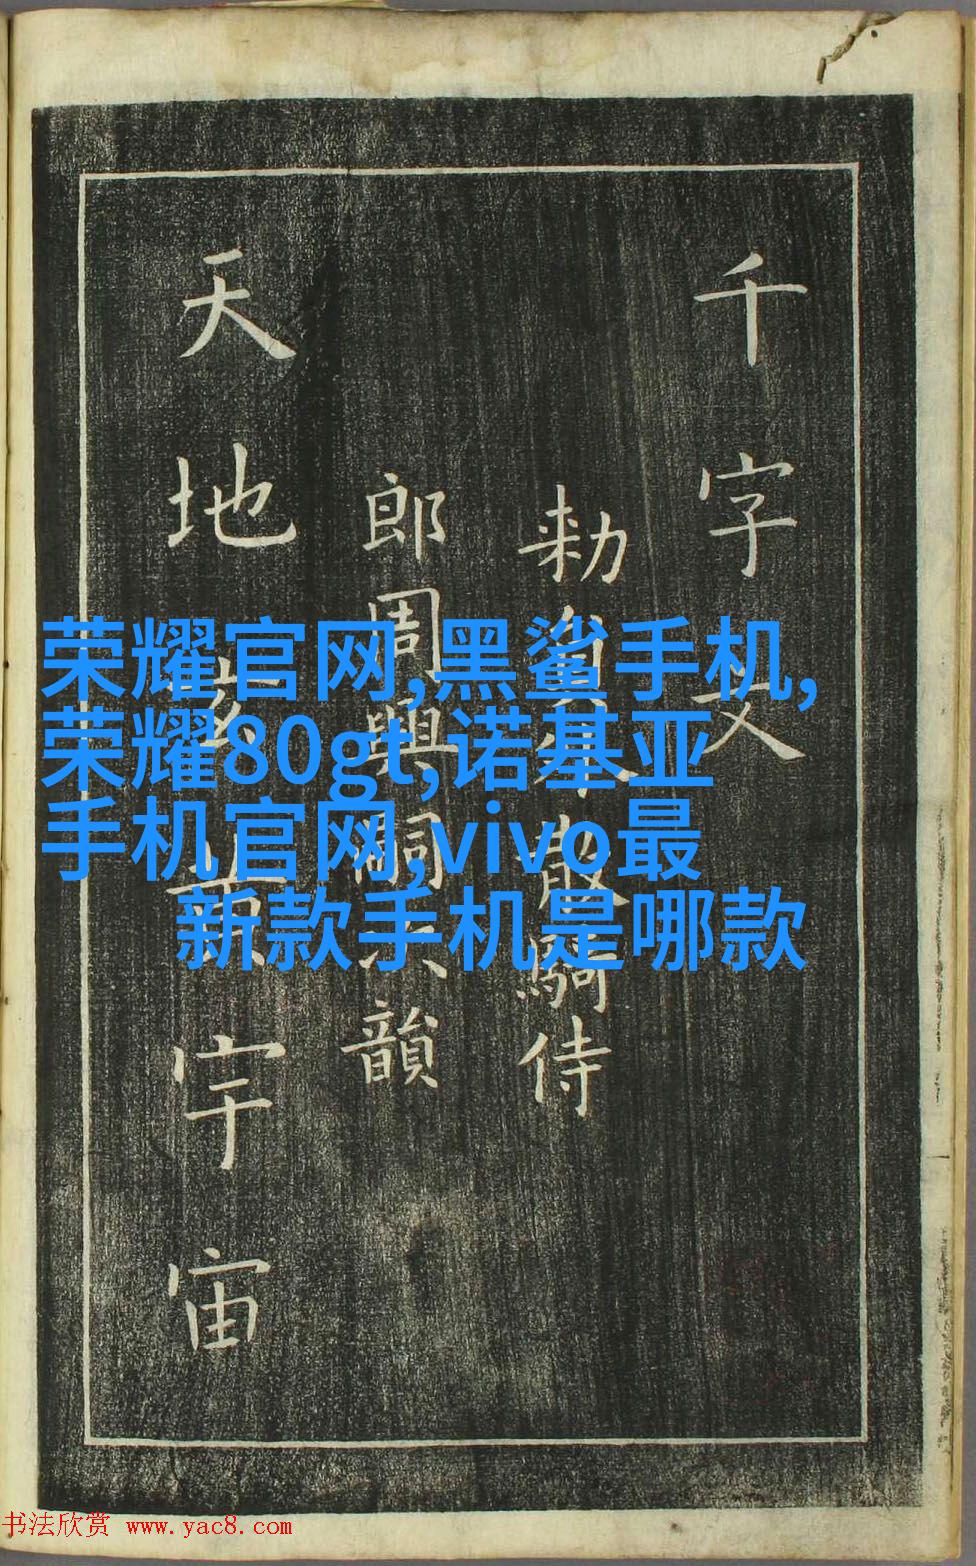 千字文
勑員外散騎侍
郎周興嗣次韻
天地玄黃宇宙
荣耀官网,黑鲨手机,
荣耀80gt,诺基亚
手机官网,vivo最
新款手机是哪款
书法欣赏 www.yac8.com